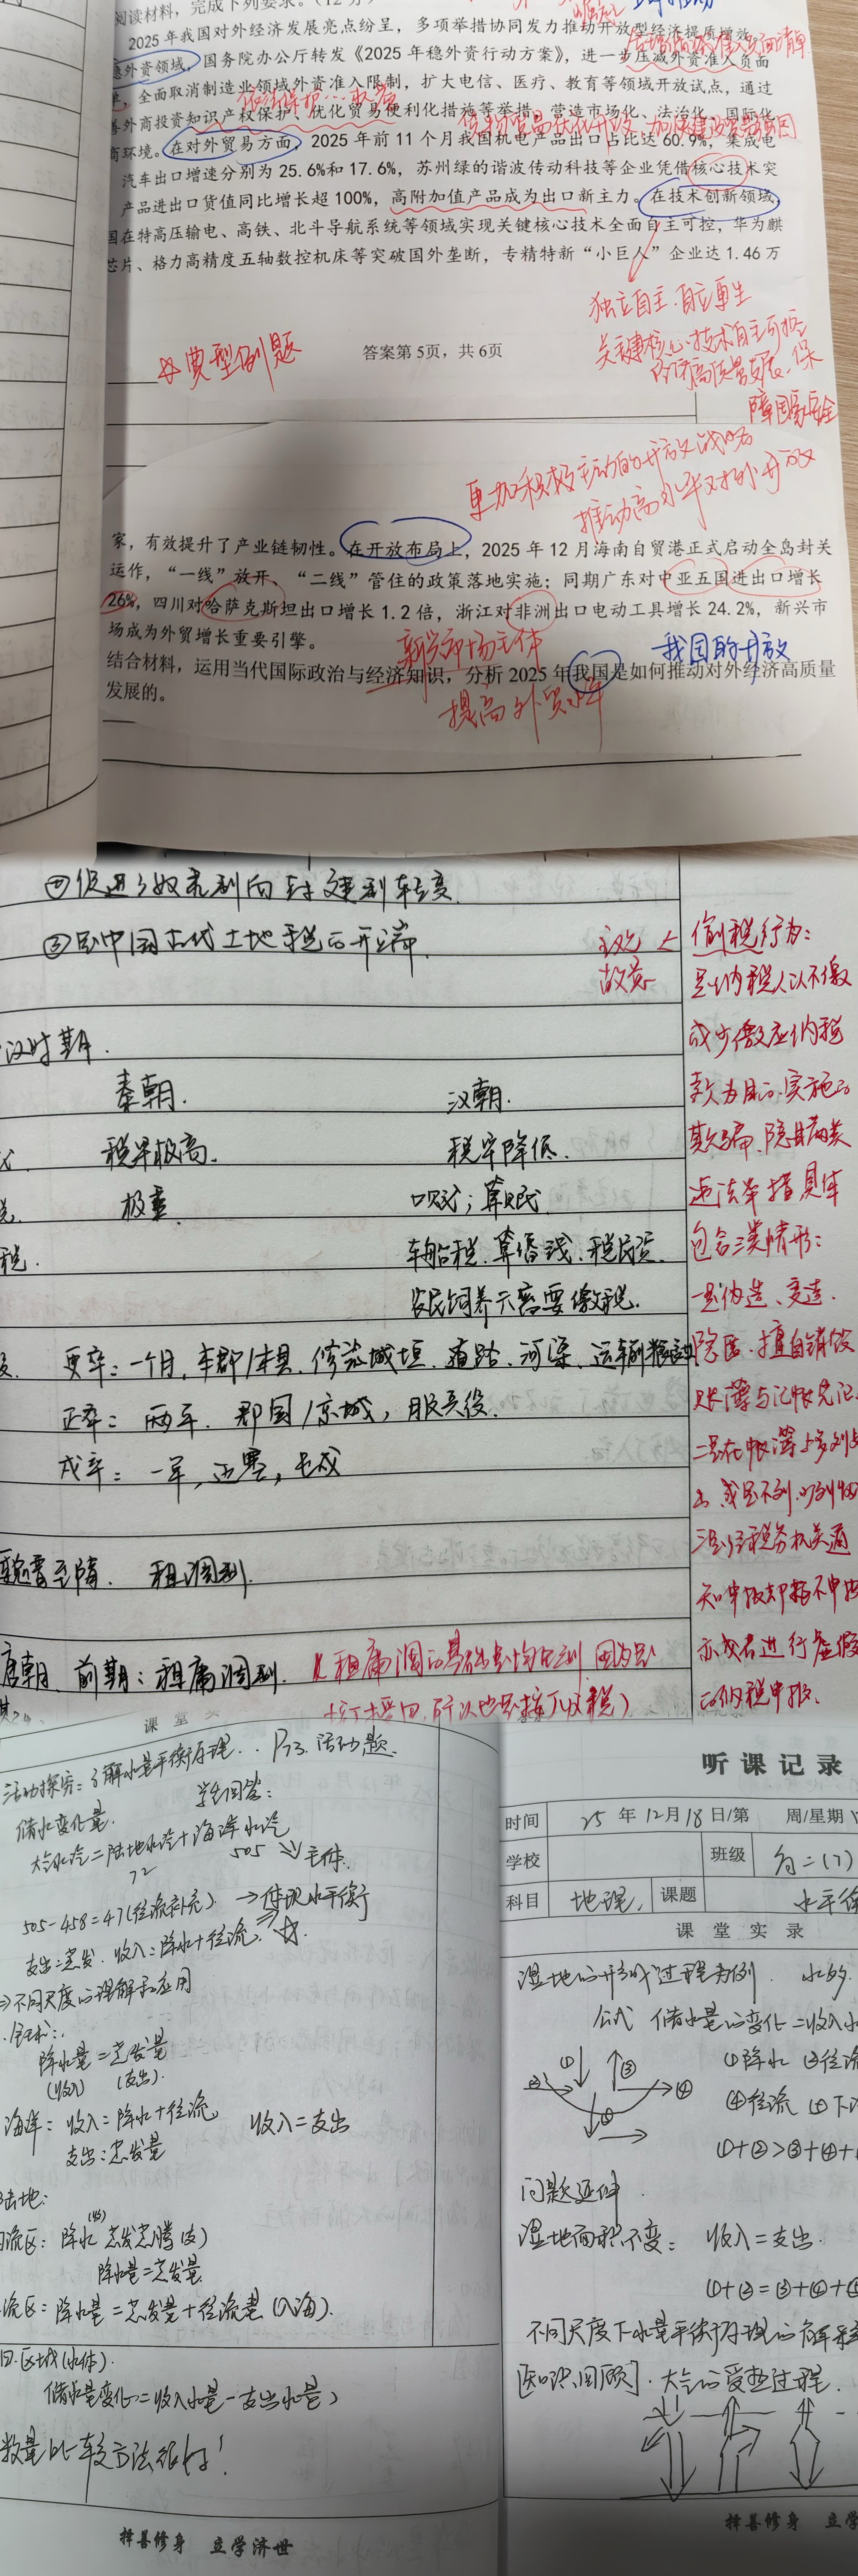 阅读材料，完成下列要求。（12分）
2025年我国对外经济发展亮点纷呈，多项举措协同发力推动开放型经济提质增效。
稳外资领域，国务院办公厅转发《2025年稳外资行动方案》，进一步压减外资准入负面
全面取消制造业领域外资准入限制，扩大电信、医疗、教育等领域开放试点，通过
善外商投资知识产权保护、优化贸易便利化措施等举措，营造市场化、法治化、国际化
商环境。在对外贸易方面，2025年前11个月我国机电产品出口占比达60.9%，集成电
汽车出口增速分别为25.6%和17.6%，苏州绿的谐波传动科技等企业凭借核心技术突
产品进出口货值同比增长超100%，高附加值产品成为出口新主力。在技术创新领域，
国在特高压输电、高铁、北斗导航系统等领域实现关键核心技术全面自主可控，华为麒
芯片、格力高精度五轴数控机床等突破国外垄断，专精特新“小巨人”企业达1.46万
独立自主、自立更生
关键核心技术自主可控
高质量发展、保
障国家安全
典型例题
答案第5页，共6页
更加积极主动的开放战略
推动高水平对外开放
家，有效提升了产业链韧性。在开放布局上，2025年12月海南自贸港正式启动全岛封关
运作，“一线”放开、“二线”管住的政策落地实施；同期广东对中亚五国进出口增长
26%，四川对哈萨克斯坦出口增长1.2倍，浙江对非洲出口电动工具增长24.2%，新兴市
场成为外贸增长重要引擎。
新兴市场主体
我国的开放
结合材料，运用当代国际政治与经济知识，分析2025年我国是如何推动对外经济高质量
发展的。
提高外贸水平
②促进了奴隶制向封建制转变
③是中国古代土地税的开端
主观
故意
偷税行为：
是纳税人以不缴
或少缴应纳税
款为目的，实施的
欺骗、隐瞒等类
违法举措具体
包含三类情形：
一是伪造、变造、
隐匿、擅自销毁
账簿与记帐凭证
二是在帐簿上多列支
出，或是不列、少列收
三是经税务机关通
知申报却拒不申报
亦或者进行虚假
的纳税申报。
汉时期
秦朝 汉朝
税率极高 税率降低
极重 口赋；算赋
税 车船税、算缗钱、税民资
农民饲养六畜要缴税
更卒：一个月，本郡/本县，修筑城垣、道路、河渠、运输粮草
正卒：两年，郡国/京城，服兵役
戍卒：一年，边塞，屯戍
至隋 租调制
唐朝 前期：租庸调制（租庸调的基础是均田制 因为是
所以也是按人收税）
课堂实
活动探究：了解水量平衡原理 P73 活动题
储水变化量 学生回答：
大气水汽＝陆地水汽＋海洋水汽
72 505 主体
505-458=47(径流补充) →体现水平衡
支出：蒸发 收入：降水+径流
⇒不同尺度的理解和应用
全球：
降水量＝蒸发量
(收入) (支出)
海洋：收入＝降水+径流 收入＝支出
支出：蒸发量
陆地：
流区：降水(收) 蒸发蒸腾(支)
降水量＝蒸发量
流区：降水量＝蒸发量+径流量(入海)
四.区域(水体)
储水量变化＝收入水量－支出水量
数量比较方法很好！
择善修身 立学济世
听课记录
时间 25年12月18日/第 周/星期
学校 班级 高二(7)
科目 地理 课题 水平衡
课堂实录
湿地的形成过程为例
公式 储水量的变化＝收入水
①降水 ②径流
④径流 ⑤下
①+②>③+④+
问题延伸
湿地面积不变：收入＝支出
①+②=③+④+⑤
不同尺度下水量平衡原理的解释
[知识回顾] 大气的受热过程
择善修身 立学